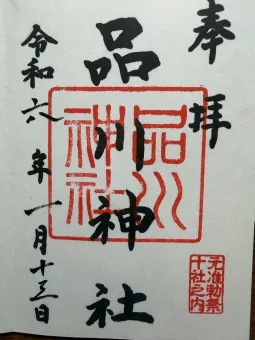 奉拝
品川神社
令和六年一月十三日
品川神社
元准勅祭
十社之内